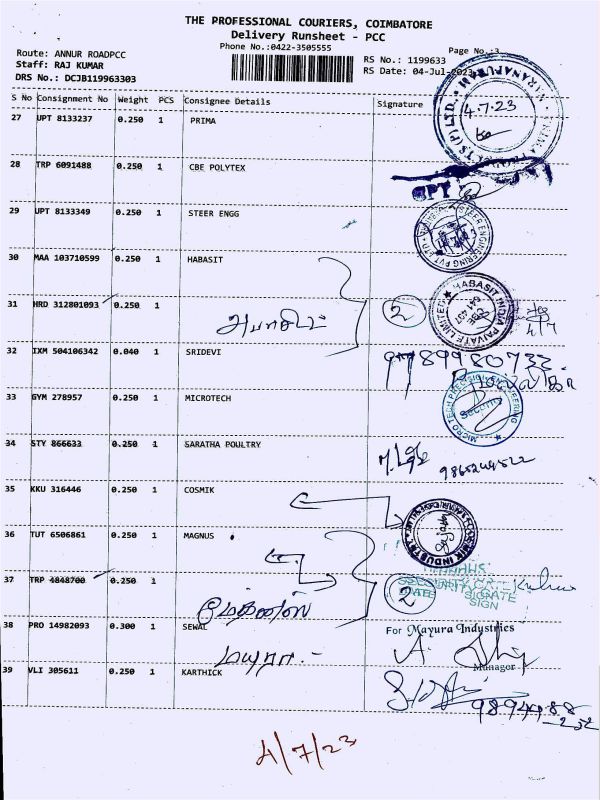 THE PROFESSIONAL COURIERS, COIMBATORE
Delivery Runsheet - PCC
Phone No.:0422-3505555
Page No.:3
Route: ANNUR ROADPCC
Staff: RAJ KUMAR
DRS No.: DCJB119963303
RS No.: 1199633
RS Date: 04-Jul-2023
S No Consignment No Weight PCS Consignee Details Signature
27 UPT 8133237 0.250 1 PRIMA
4.7.23
28 TRP 6091488 0.250 1 CBE POLYTEX
29 UPT 8133349 0.250 1 STEER ENGG
STEER ENGINEERING PVT LTD
30 MAA 103710599 0.250 1 HABASIT
HABASIT INDIA PRIVATE LIMITED
CBE
641 407
31 HRD 312801093 0.250 1
அபாசிட்
2
4/7
32 IXM 504106342 0.040 1 SRIDEVI
9789980733
33 GYM 278957 0.250 1 MICROTECH
MICROTECH PRECISION ENGINEERING
34 STY 866633 0.250 1 SARATHA POULTRY
35 KKU 316446 0.250 1 COSMIK
COSMIK INDUSTRY
36 TUT 6506861 0.250 1 MAGNUS
37 TRP 4848700 0.250 1
2
DATE
SIGNATE
SIGN
மேக்னஸ்
38 PRO 14982093 0.300 1 SEWAL
For Mayura Industries
மயூரா .-
Manager
39 VLI 305611 0.250 1 KARTHICK
4/7/23